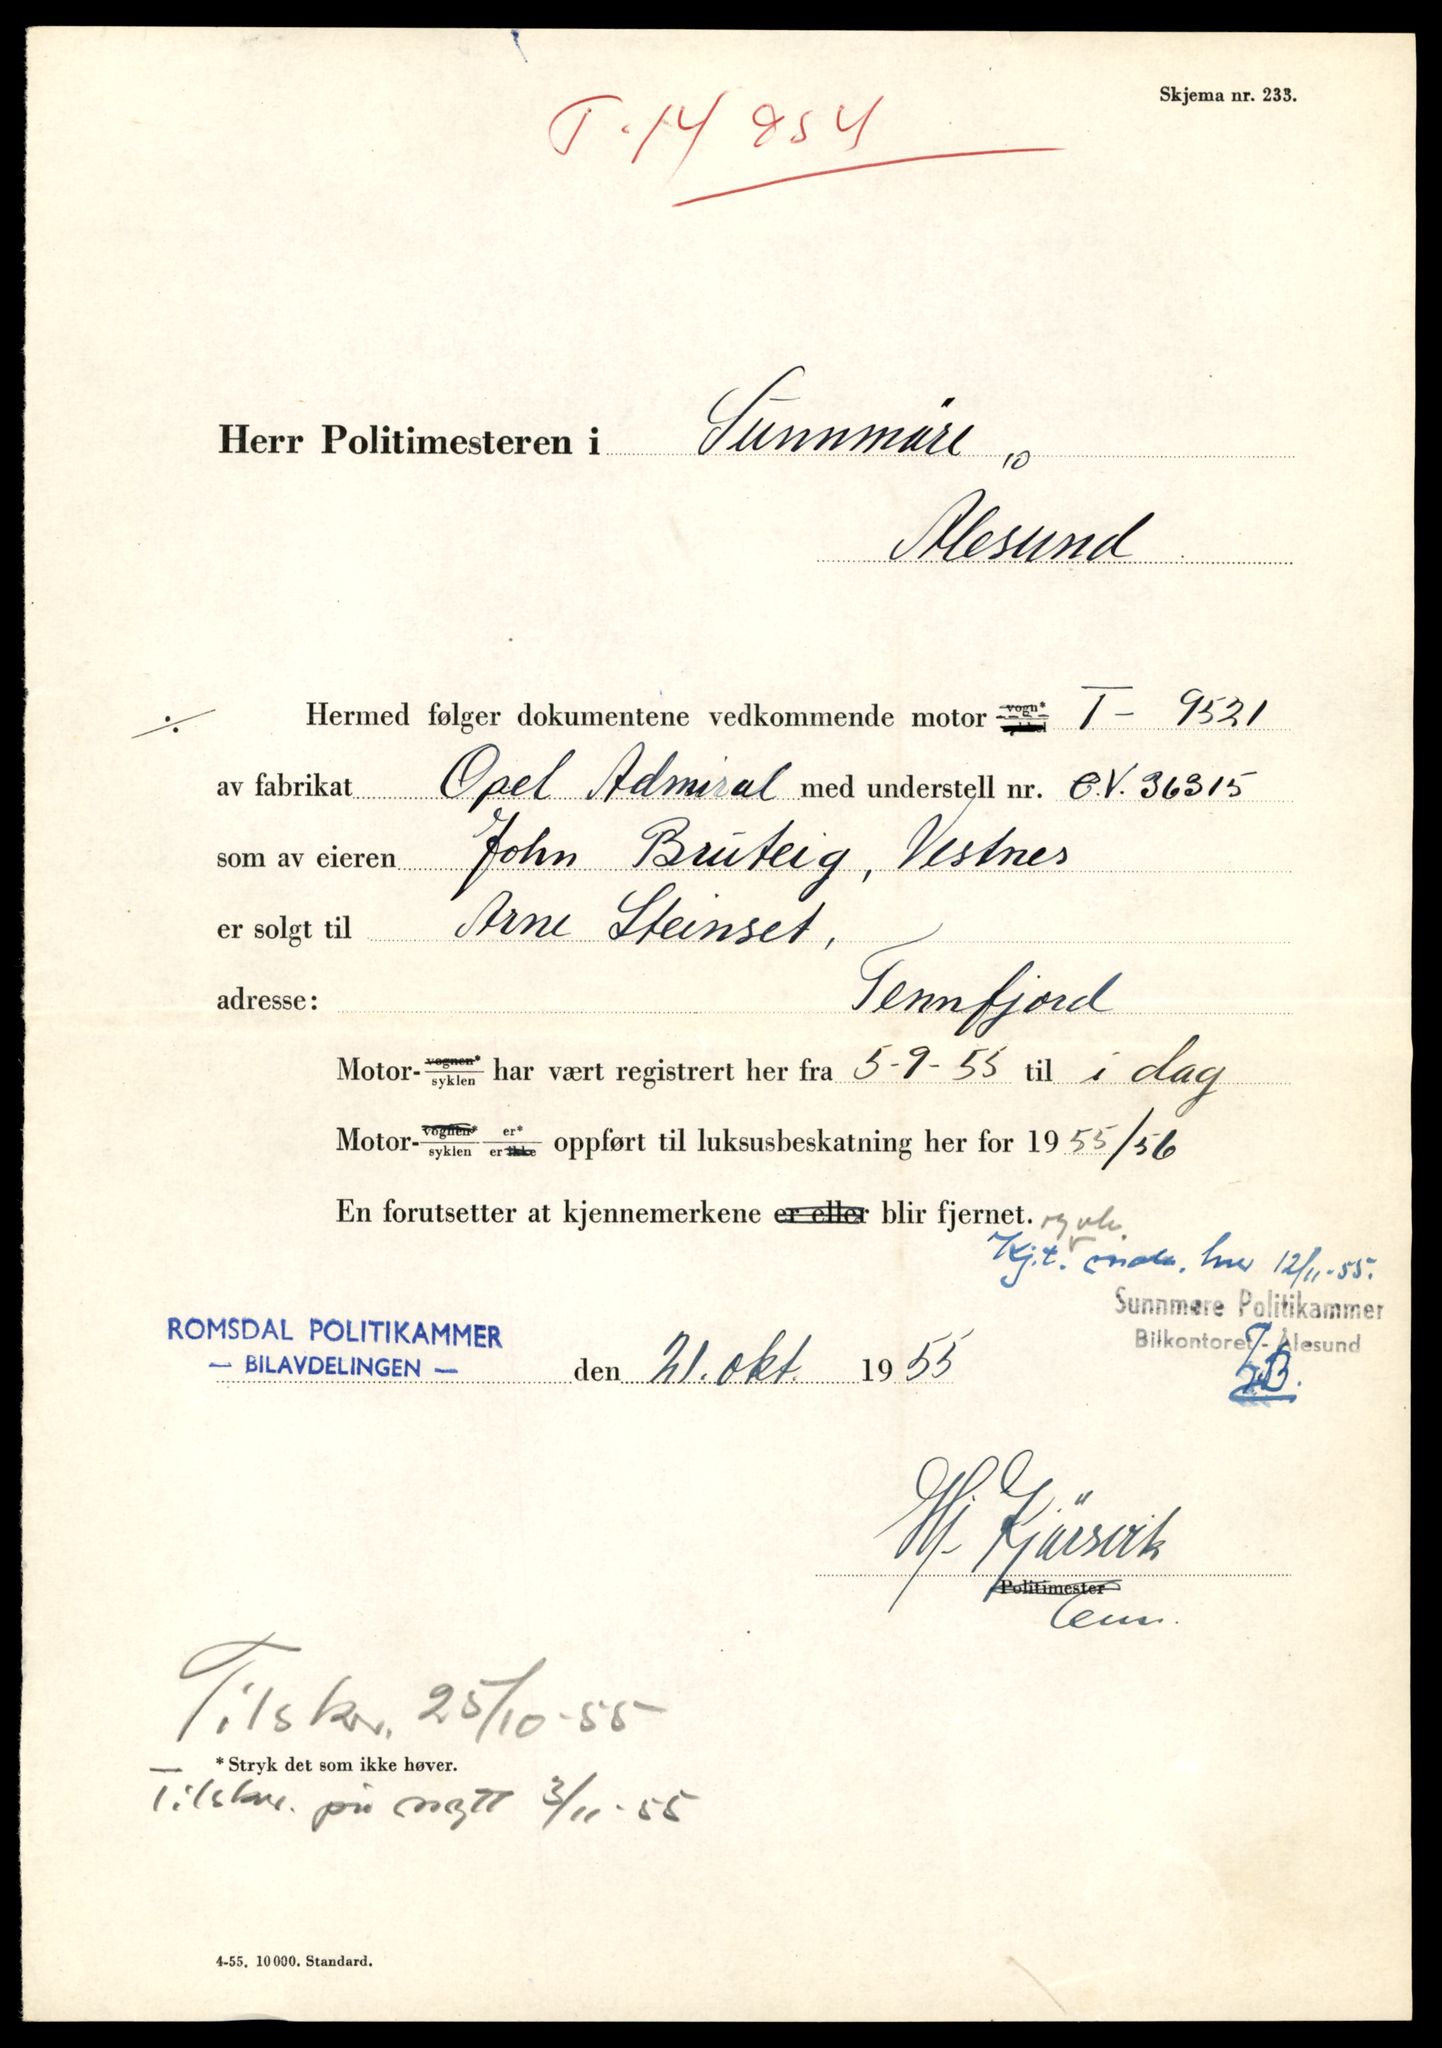 Skjema nr. 233.
T-14854
Herr Politimesteren i Sunnmöre
Ålesund
÷ Hermed følger dokumentene vedkommende motor vogn* T- 9521
av fabrikat Opel Admiral med understell nr. C.V. 36315
som av eieren John Bruteig, Vestnes
er solgt til Arne Steinset,
adresse: Tennfjord
Motor-vognen* syklen har vært registrert her fra 5-9-55 til i dag
Motor-vognen* syklen er* er ikke oppført til luksusbeskatning her for 1955/56
En forutsetter at kjennemerkene er eller blir fjernet.
Kj.t. her 12/11-55.
Sunnmøre Politikammer
Bilkontoret - Ålesund
ROMSDAL POLITIKAMMER
— BILAVDELINGEN —
den 21. okt. 1955
Hj. Kjörsvik
Politimester
Tilskr. 25/10-55
* Stryk det som ikke høver.
Tilskr. på nytt 3/11-55
4-55. 10 000. Standard.